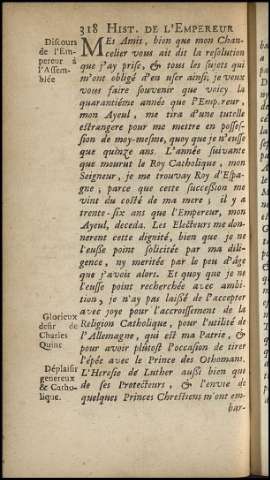 318 HIST. DE L'EMPEREUR
Discours
de l'Em-
pereur à
l'Assem-
blée
MEs Amis, bien que mon Chan-
celier vous ait dit la resolution
que j'ay prise, & tous les sujets qui
m'ont obligé d'en user ainsi; je veux
vous faire souvenir que voicy la
quarantiéme année que l'Empereur,
mon Ayeul, me tira d'une tutelle
estrangere pour me mettre en posses-
sion de moy-mesme, quoy que je n'eusse
que quinze ans. L'année suivante
que mourut le Roy Catholique, mon
Seigneur, je me trouvay Roy d'Espa-
gne; parce que cette succession me
vint du costé de ma mere; il y a
trente-six ans que l'Empereur, mon
Ayeul, deceda. Les Electeurs me don-
nerent cette dignité, bien que je ne
l'eusse point solicitée par ma dili-
gence, ny meritée par le peu d'âge
que j'avois alors. Et quoy que je ne
l'eusse point recherchée avec ambi-
tion, je n'ay pas laissé de l'accepter
avec joye pour l'accroissement de la
Religion Catholique, pour l'utilité de
l'Allemagne, qui est ma Patrie, &
pour avoir plûtost l'occasion de tirer
l'épée avec le Prince des Othomans.
L'Heresie de Luther aussi bien que
de ses Protecteurs, & l'envie de
quelques Princes Chrestiens m'ont em
bar-
Glorieux
desir de
Charles
Quint
Déplaisir
genereux
& Catho-
lique.